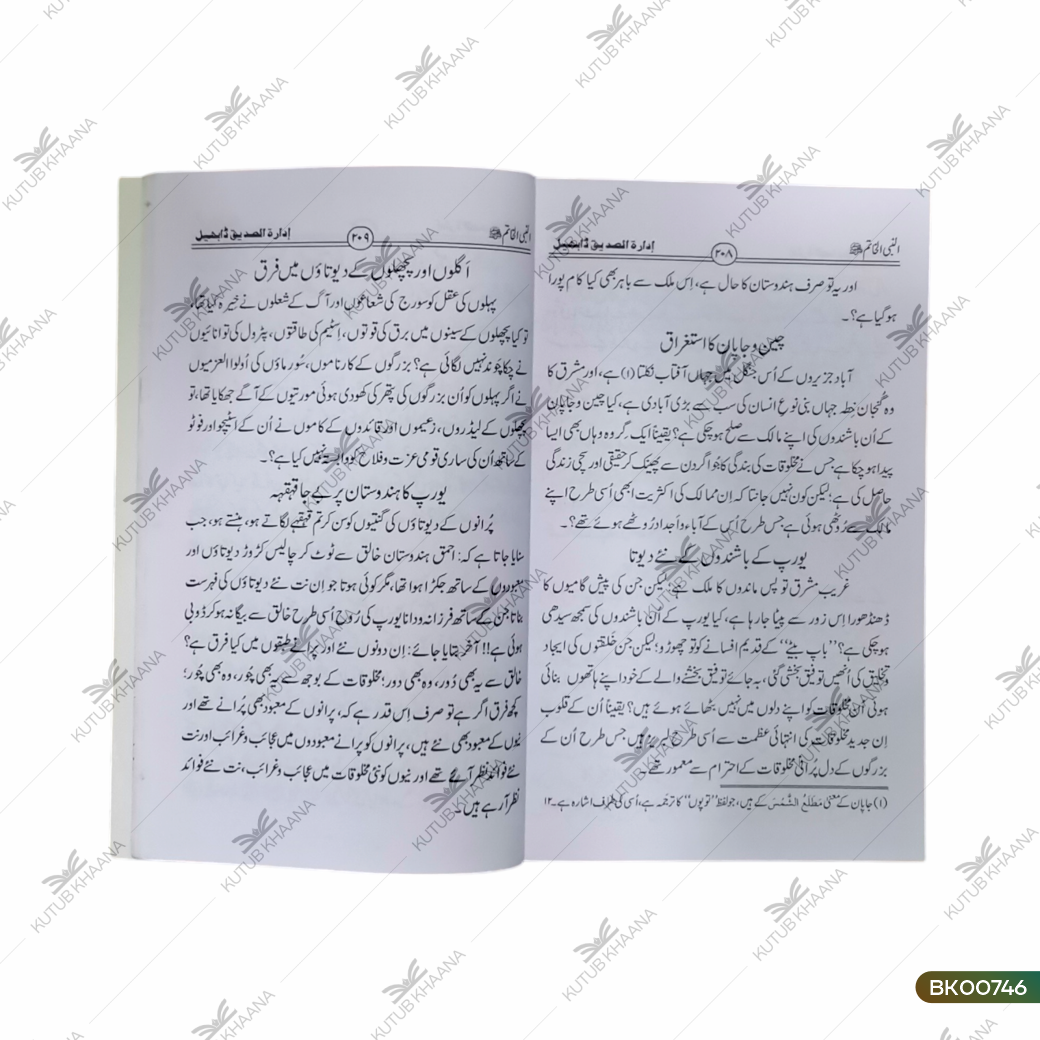 النبی الخاتم ﷺ
۲۰۸
إدارة الصديق ڈابھیل
اور یہ تو صرف ہندوستان کا حال ہے، اِس ملک سے باہر بھی کیا کام پورا
ہو گیا ہے؟۔
چین و جاپان کا استغراق
آباد جزیروں کے اُس جنگل میں جہاں آفتاب نکلتا (۱) ہے، اور مشرق کا
وہ گُنجان خِطہ جہاں بنی نوعِ انسان کی سب سے بڑی آبادی ہے، کیا چین و جاپان
کے اُن باشندوں کی اپنے مالک سے صلح ہو چکی ہے؟ یقیناً ایک گِروہ وہاں بھی ایسا
پیدا ہو چکا ہے جس نے مخلوقات کی بندگی کا جُوا گردن سے پھینک کر حقیقی اور سچی زندگی
حاصل کی ہے؛ لیکن کون نہیں جانتا کہ اِن ممالک کی اکثریت ابھی اُسی طرح اپنے
مالک سے رُوٹھی ہوئی ہے جس طرح اُس کے آباء و اَجداد رُوٹھے ہوئے تھے؟۔
یورپ کے باشندوں کے نئے دیوتا
غریب مشرق تو پس ماندوں کا ملک ہے؛ لیکن جن کی پیش گامیوں کا
ڈھنڈھورا اِس زور سے پیٹا جا رہا ہے، کیا یورپ کے اُن باشندوں کی سمجھ سیدھی
ہو چکی ہے؟ ”باپ بیٹے“ کے قدیم افسانے کو تو چھوڑو؛ لیکن جن خَلقتوں کی ایجاد
و تخلیق کی اُنھیں توفیق بخشی گئی، بہ جائے توفیق بخشنے والے کے خود اپنے ہاتھوں بنائی
ہوئی اُن مخلوقات کو اپنے دلوں میں نہیں بٹھائے ہوئے ہیں؟ یقیناً اُن کے قلوب
اِن جدید مخلوقات کی انتہائی عظمت سے اُسی طرح لبریز ہیں جس طرح اُن کے
بزرگوں کے دل پُرانی مخلوقات کے احترام سے معمور تھے۔
(۱) جاپان کے معنی مَطْلَعُ الشَّمْسْ کے ہیں، جو لفظ ”توپون“ کا ترجمہ ہے، اُسی کی طرف اشارہ ہے۔ ۱۲
النبی الخاتم ﷺ
۲۰۹
إدارة الصديق ڈابھیل
اَگلوں اور پچھلوں کے دیوتاؤں میں فرق
پہلوں کی عقل کو سورج کی شعاعوں اور آگ کے شعلوں نے خیرہ کیا تھا،
تو کیا پچھلوں کے سینوں میں برق کی قوتوں، اِسٹیم کی طاقتوں، پٹرول کی توانائیوں
نے چکا چَوند نہیں لگائی ہے؟ بزرگوں کے کارناموں، سُورماؤں کی اُولوا العزمیوں
نے اگر پہلوں کو اُن بزرگوں کی پتھر کی کھودی ہوئی مورتیوں کے آگے جھکایا تھا، تو
پچھلوں کے لیڈروں، زعیموں اور قائدوں کے کاموں نے اُن کے اسٹیچو اور فوٹو
کے ساتھ اُن کی ساری قومی عزت و فلاح کو وابستہ نہیں کیا ہے؟۔
یورپ کا ہندوستان پر بے جا قہقہہ
پُرانوں کے دیوتاؤں کی گنتیوں کو سن کر تم قہقہے لگاتے ہو، ہنستے ہو، جب
سنایا جاتا ہے کہ: احمق ہندوستان خالق سے ٹوٹ کر چالیس کروڑ دیوتاؤں اور
معبودوں کے ساتھ جکڑا ہوا تھا، مگر کوئی ہوتا جو اِن نت نئے دیوتاؤں کی فہرست
بناتا جن کے ساتھ فرزانہ و دانا یورپ کی رُوح اُسی طرح خالق سے بیگانہ ہو کر ڈوبی
ہوئی ہے!! آخر بتایا جائے: اِن دونوں نئے اور پرانے طبقوں میں کیا فرق ہے؟
خالق سے یہ بھی دُور، وہ بھی دور؛ مخلوقات کے بوجھ سے یہ بھی چُور، وہ بھی چُور؛
کچھ فرق اگر ہے تو صرف اِس قدر ہے کہ، پرانوں کے معبود بھی پُرانے تھے اور
نیوں کے معبود بھی نئے ہیں، پرانوں کو پرانے معبودوں میں عجائب و غرائب اور نت
نئے فوائد نظر آئے تھے اور نیوں کو نئی مخلوقات میں عجائب و غرائب، نت نئے فوائد
نظر آ رہے ہیں۔
KUTUB KHAANA
BK00746